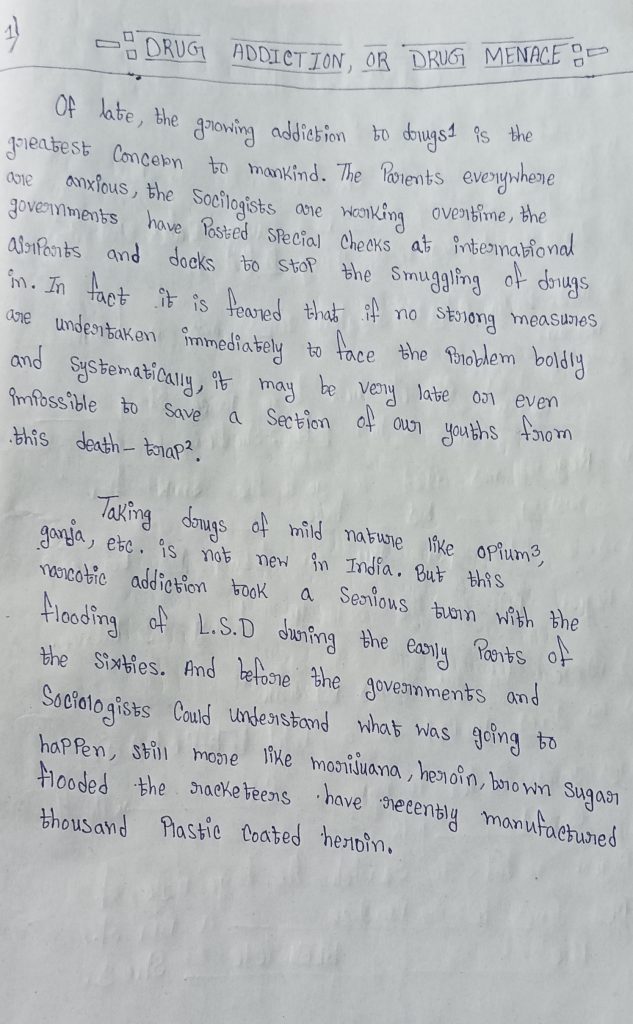 1)
DRUG ADDICTION, OR DRUG MENACE
Of late, the growing addiction to drugs1 is the
greatest Concern to mankind. The Parents everywhere
are anxious, the Socilogists are working overtime, the
governments have Posted Special Checks at international
airPorts and docks to stop the smuggling of drugs
in. In fact it is feared that if no strong measures
are undertaken immediately to face the Problem boldly
and systematically, it may be very late or even
impossible to save a Section of our youths from
this death-trap2.
Taking drugs of mild nature like opium3,
ganja, etc. is not new in India. But this
narcotic addiction took a Serious turn with the
flooding of L.S.D during the early Parts of
the sixties. And before the governments and
Sociologists Could understand what was going to
haPPen, still more like marijuana, heroin, brown sugar
flooded the racketeers have recently manufactured
thousand Plastic Coated heroin.